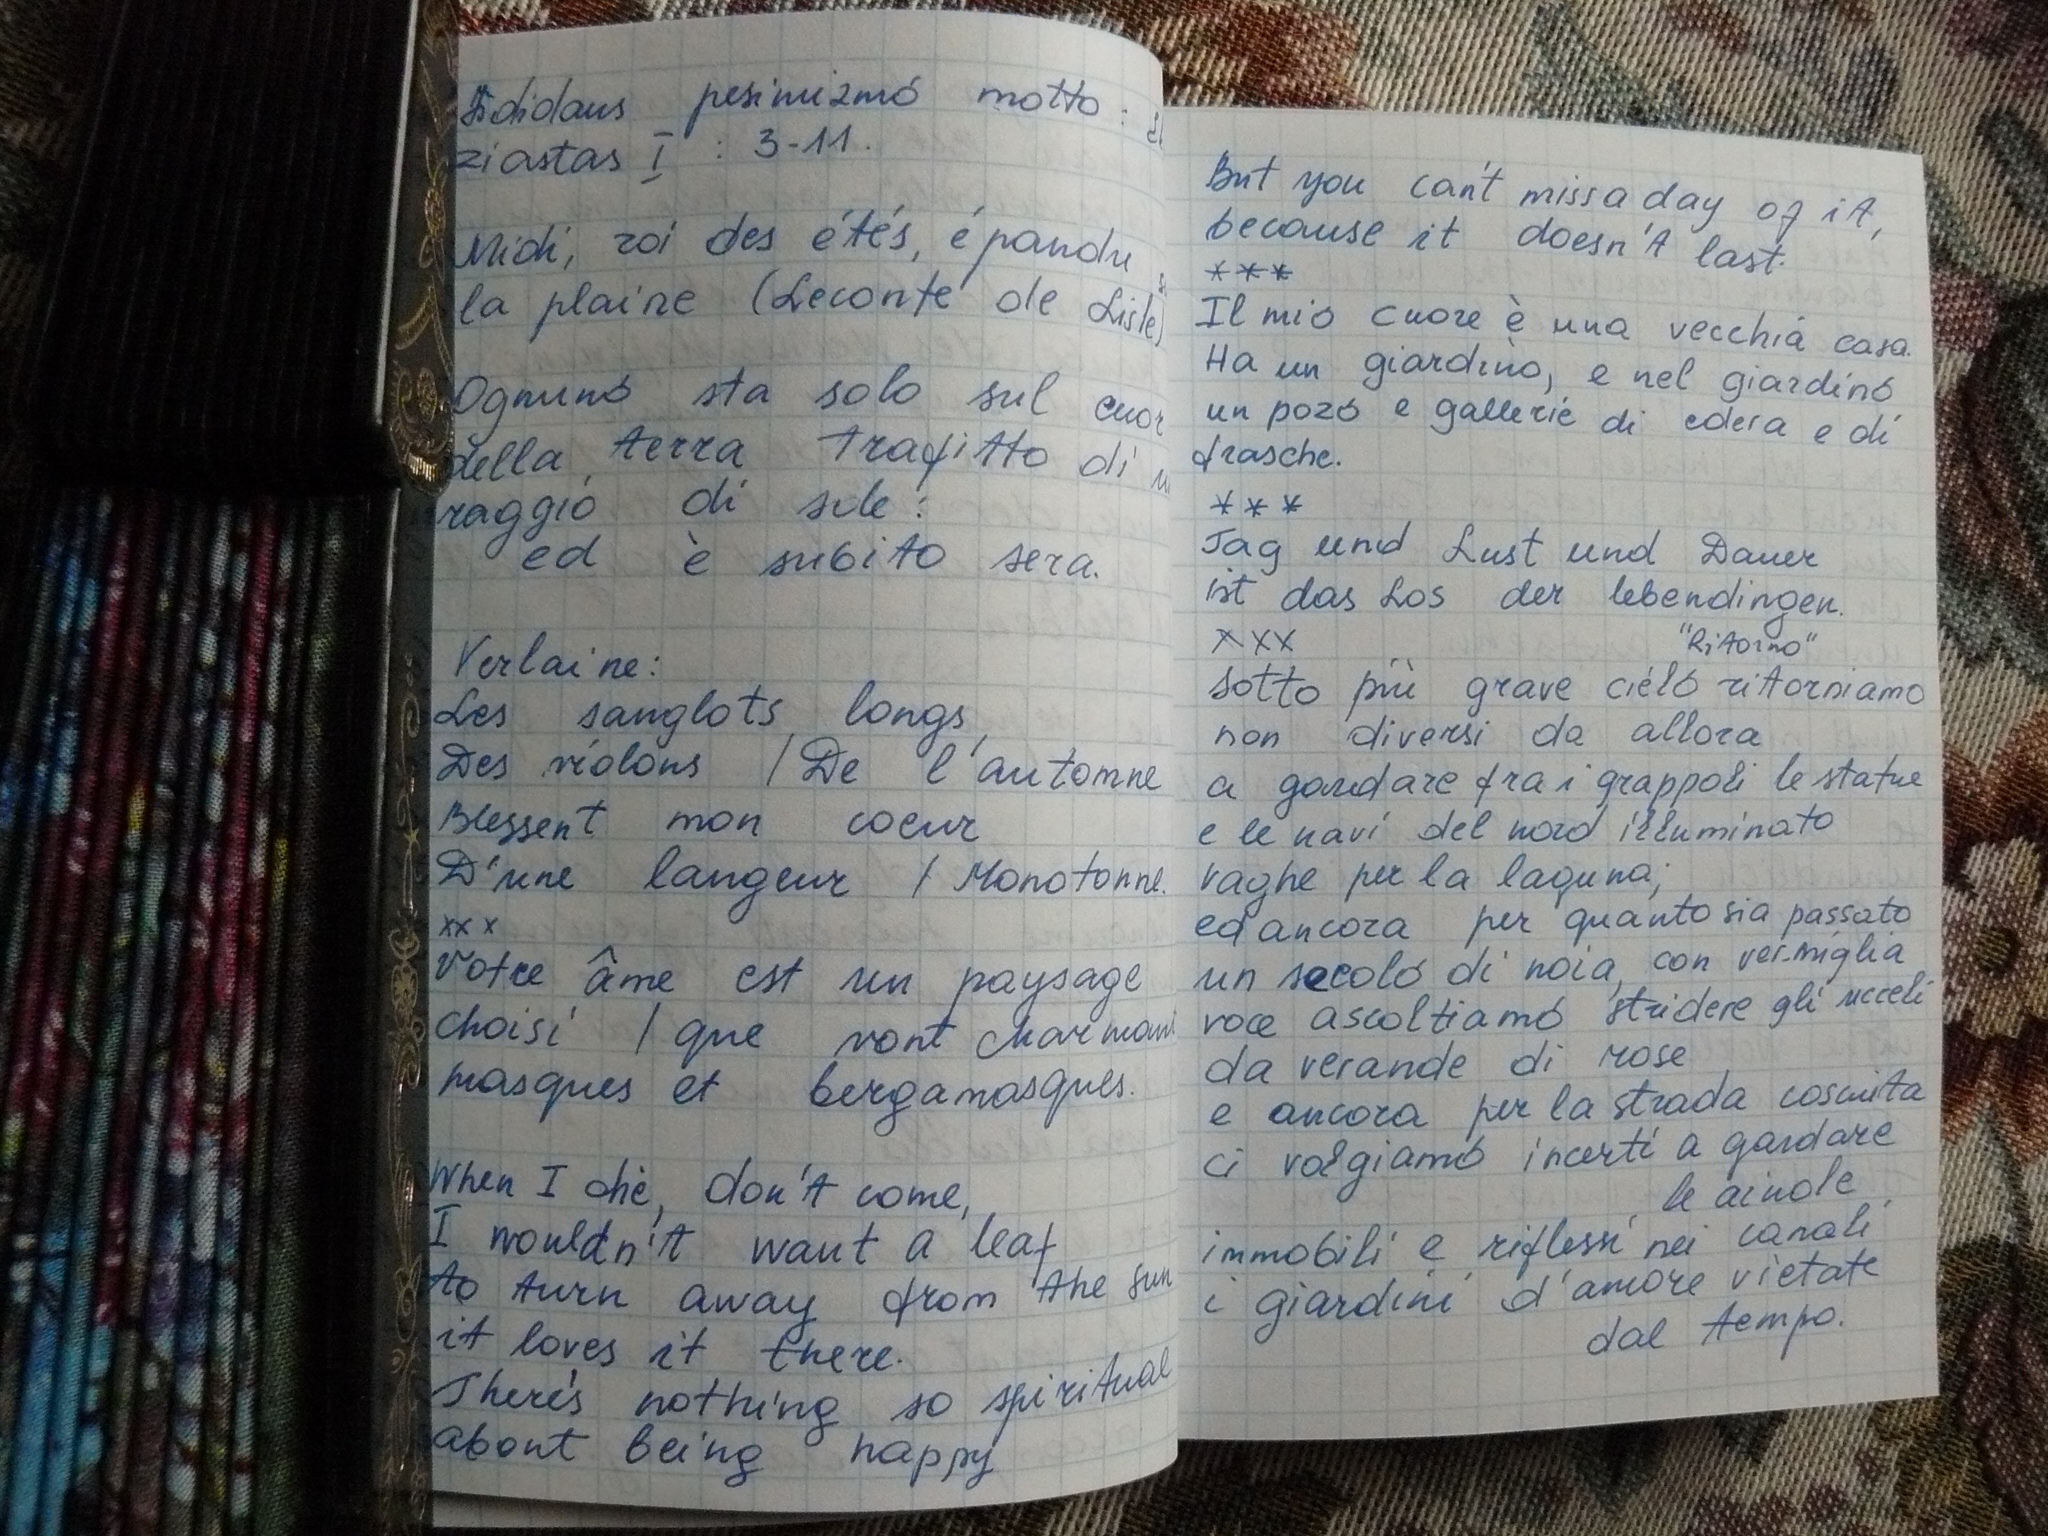 Išdidaus pesimizmó motto:
ziastas I : 3-11.
Midi, roi des étés, épandu
la plaine (Leconte de Lisle)
Ognunó sta solo sul cuor
della terra trafitto di
raggió di sole:
ed è subito sera.
Verlaine:
Les sanglots longs
Des violons / De l'automne
Blessent mon coeur
D'une langeur / Monotonne.
xxx
Votre âme est un paysage
choisi / que vont charmant
masques et bergamasques.
When I die, don't come,
I wouldn't want a leaf
to turn away from the sun
it loves it there.
There's nothing so spiritual
about being happy
But you can't miss a day of it,
because it doesn't last.
***
Il mio cuore è una vecchia casa.
Ha un giardino, e nel giardinó
un pozó e gallerie di edera e di
frasche.
***
Tag und Lust und Dauer
ist das Los der lebendingen.
xxx "Ritorno"
sotto più grave cieló ritorniamo
non diversi da allora
a gardare fra i grappoli le statue
e le navi del nord illuminato
vaghe per la laguna;
ed ancora per quanto sia passato
un secoló di noia, con vermiglia
voce ascoltiamó stridere gli ucceli
da verande di rose
e ancora per la strada cosciuta
ci volgiamó incerti a gardare
le aiuole
immobili e riflessi nei canali
i giardini d'amore vietate
dal tempo.